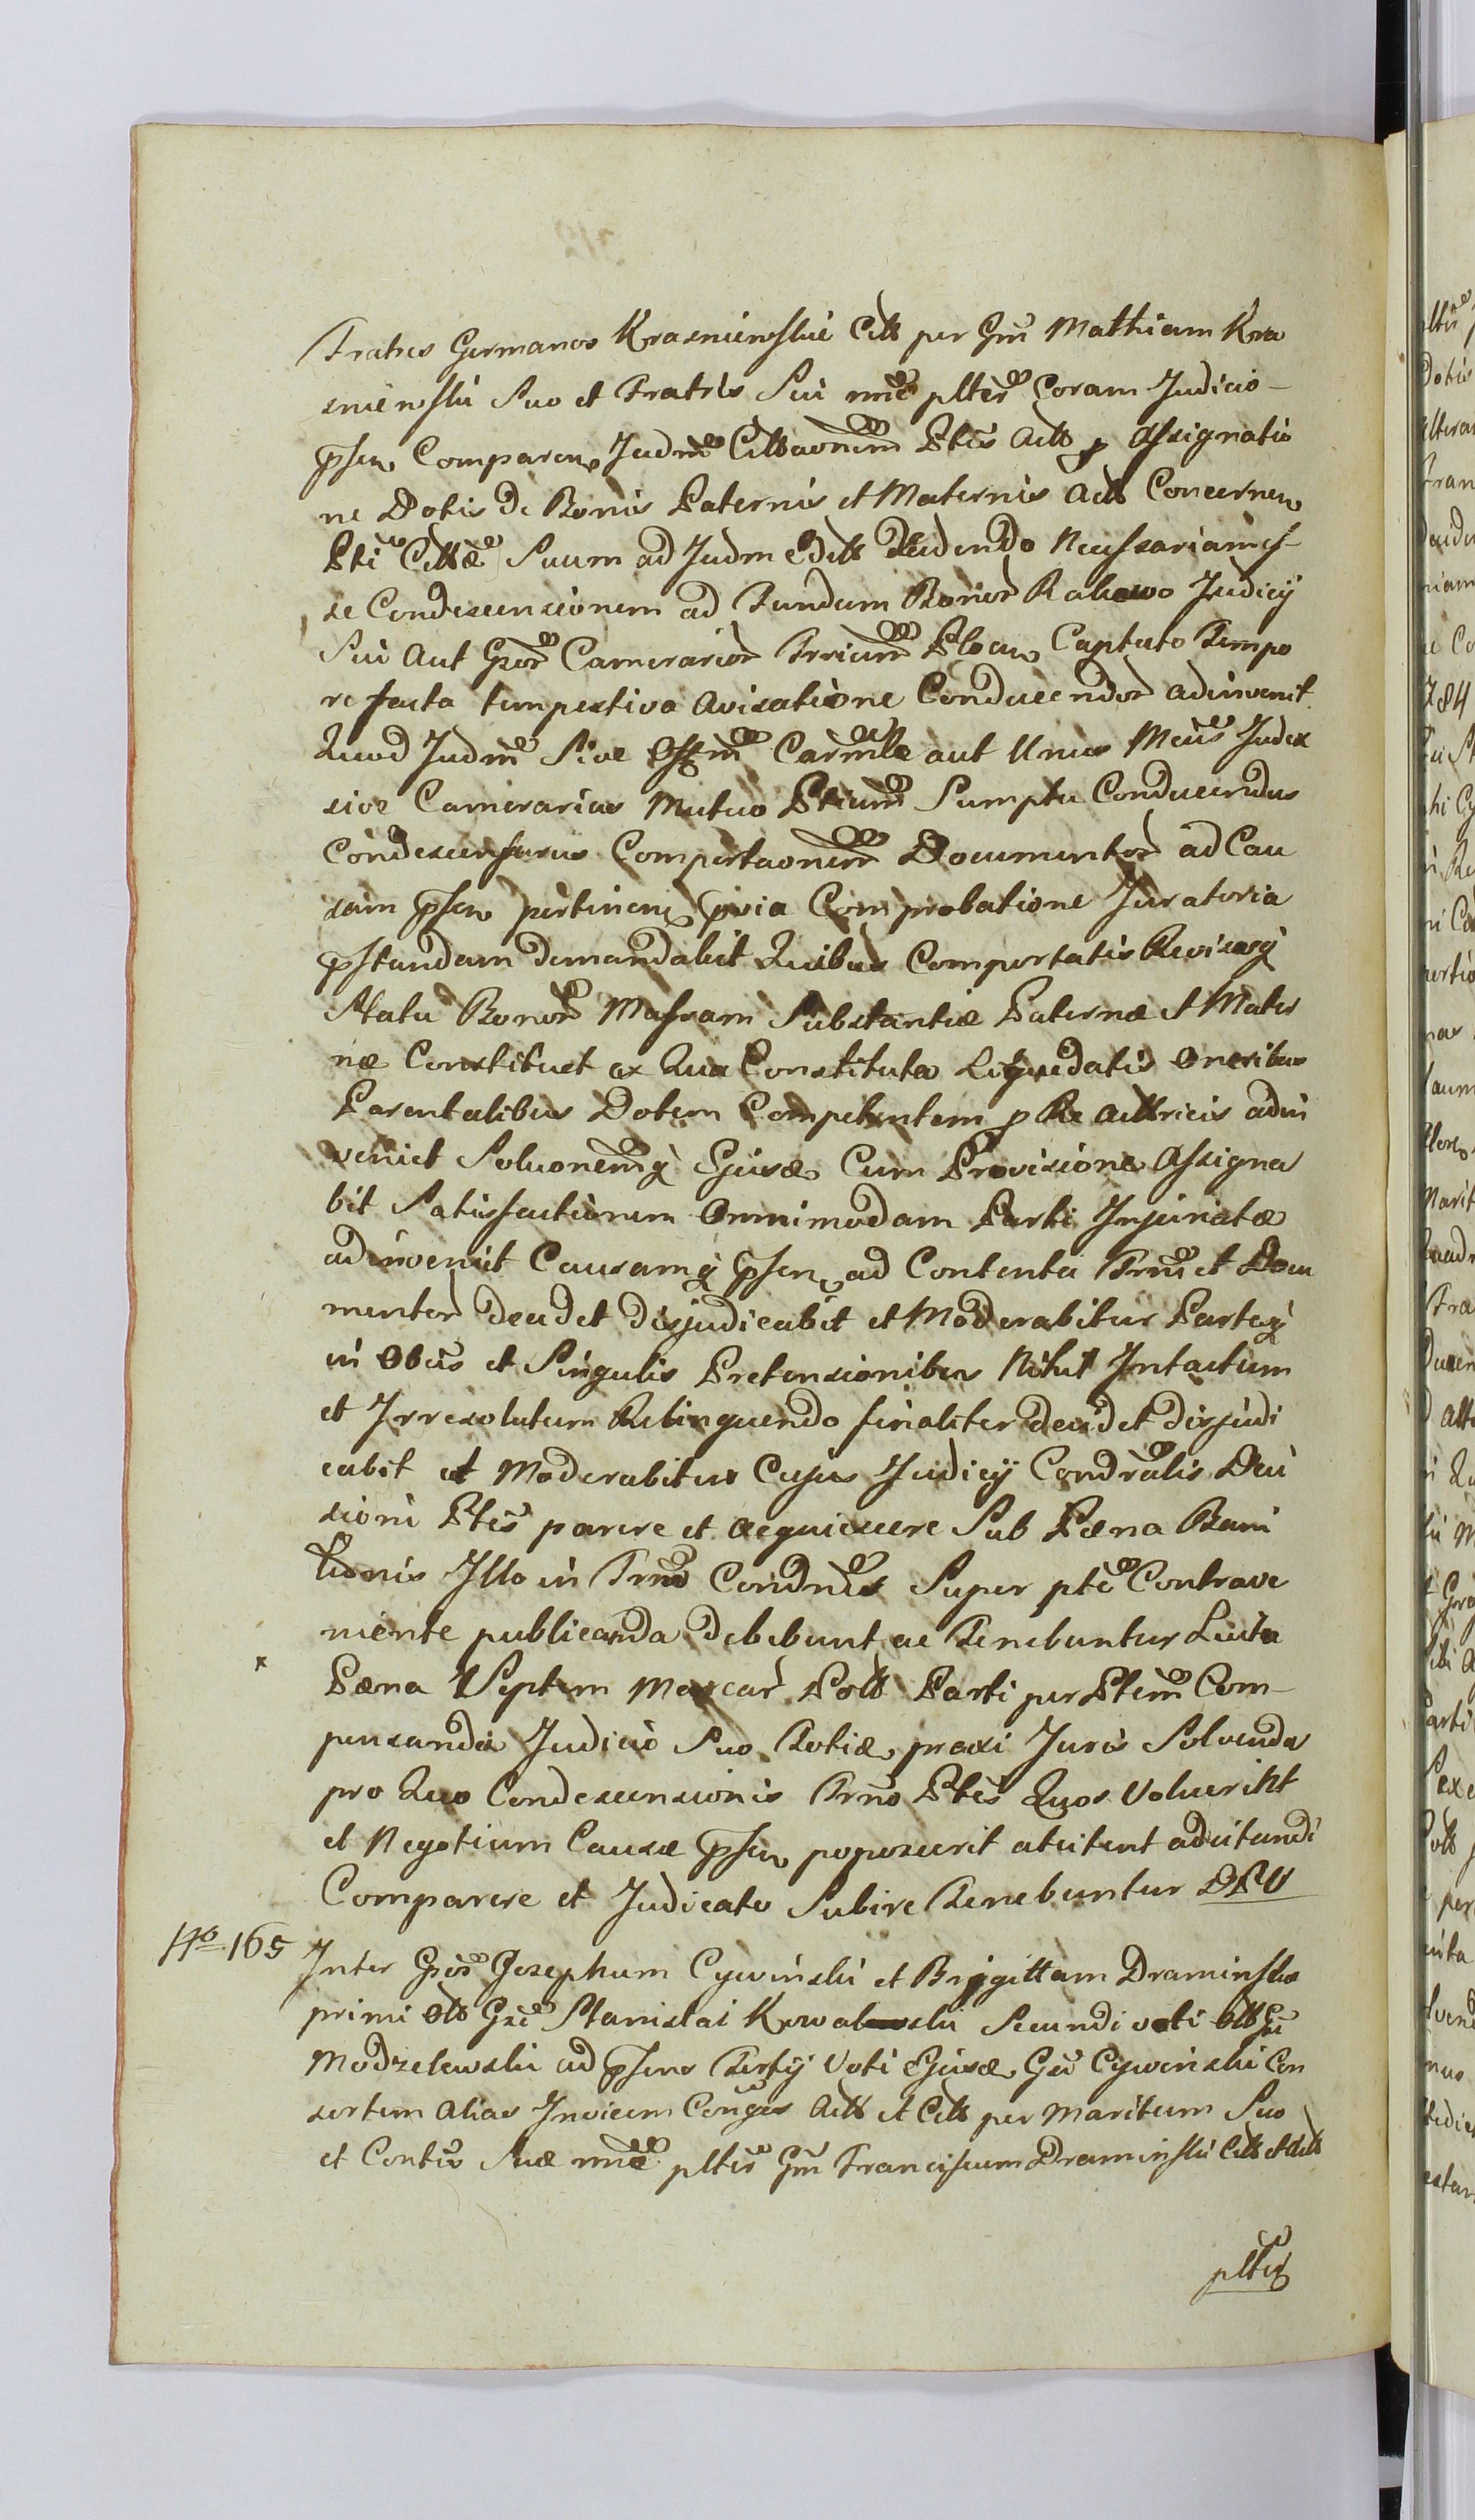 Fratres Germanos Krasniewskie Citt per Gm Mathiam Kra
sniewski Suo et Fratris Sui nne pltes Coram Judicio
pſen Comparen Judm Cittaonem Ptis Actt p Aſsignatio
ne Dotis de Bonis Paternis et Maternis Actt Concernen
Pti Cittæ Suum ad Judm Editt Deidendo Neceſsariam eſ-
se Condescensionem ad Fundum Bonor Rakowo Judicij
Sui Aut Gsor Camerarior Trrium Plocen Captato Tempo
re facta tempestiva Avisatione Conducendor adinvenit.
Quod Judm Sive Oſsm Carmle aut Unus Meus Judex
sive Camerarius Mutuo Ptium Sumptu Conducendus
Condescensurus Comportaonem Documentor ad Cau
sam pſen pertinens pvia Comprobatione Juratoria
pſtandam demandabit Quibus Comportatis Revisoq
Statu Bonor Maſsam Substantiæ Paternæ et Mater
næ Constituet ex Qua Constituta Liquidatis Oneribus
Parentalibus Dotem Competentem p Re Acttricis adin
veniet Soluonemq Ejusd Cum Provisione Aſsigna
bit Satisfactionem Omnimodam Parti Injuriatæ
adinveniet Causamq pſen ad Contenta Trmi et Docu
mentor Decidet disjudicabit et Moderabitur Partesq
in Obus et Singulis Pretensionibus Nihil Intactum
et Irresolutum Relinquendo finaliter decidet disjudi
cabit et Moderabitur Cujus Judicij Condralis Deci
sioni Ptes parere et acquiescere Sub Pæna Bani
tionis Illo in Trmo Condnis Super pte Contrave
niente publicanda debebunt ac Tenebuntur Luita
Pæna Septem Marcar Poltt Parti per Ptem Com-
pensanda Judicio Suo Toties praxi Juris Solvenda
pro Quo Condescensionis Trmo Ptes Quos Voluerint
et Negotium Causæ pſen poposcerit attitent adcitandi
Comparere et Judicato Subire Tenebuntur DPV
No 165 Inter Gsos Josephum Cywinski et Brigittam Draminska
primi Ott Gsi Stanislai Kowalewski Secundi voti Ott Gsi
Modzelewski ad pſens Tertij Voti Ejusd Gsi Cywinski Con
sortem Alias Invicem Conges Actt et Citt per Maritum Suo
et Contis Suæ nne pltes Gm Franciscum Draminski Citt et Actt
pltes